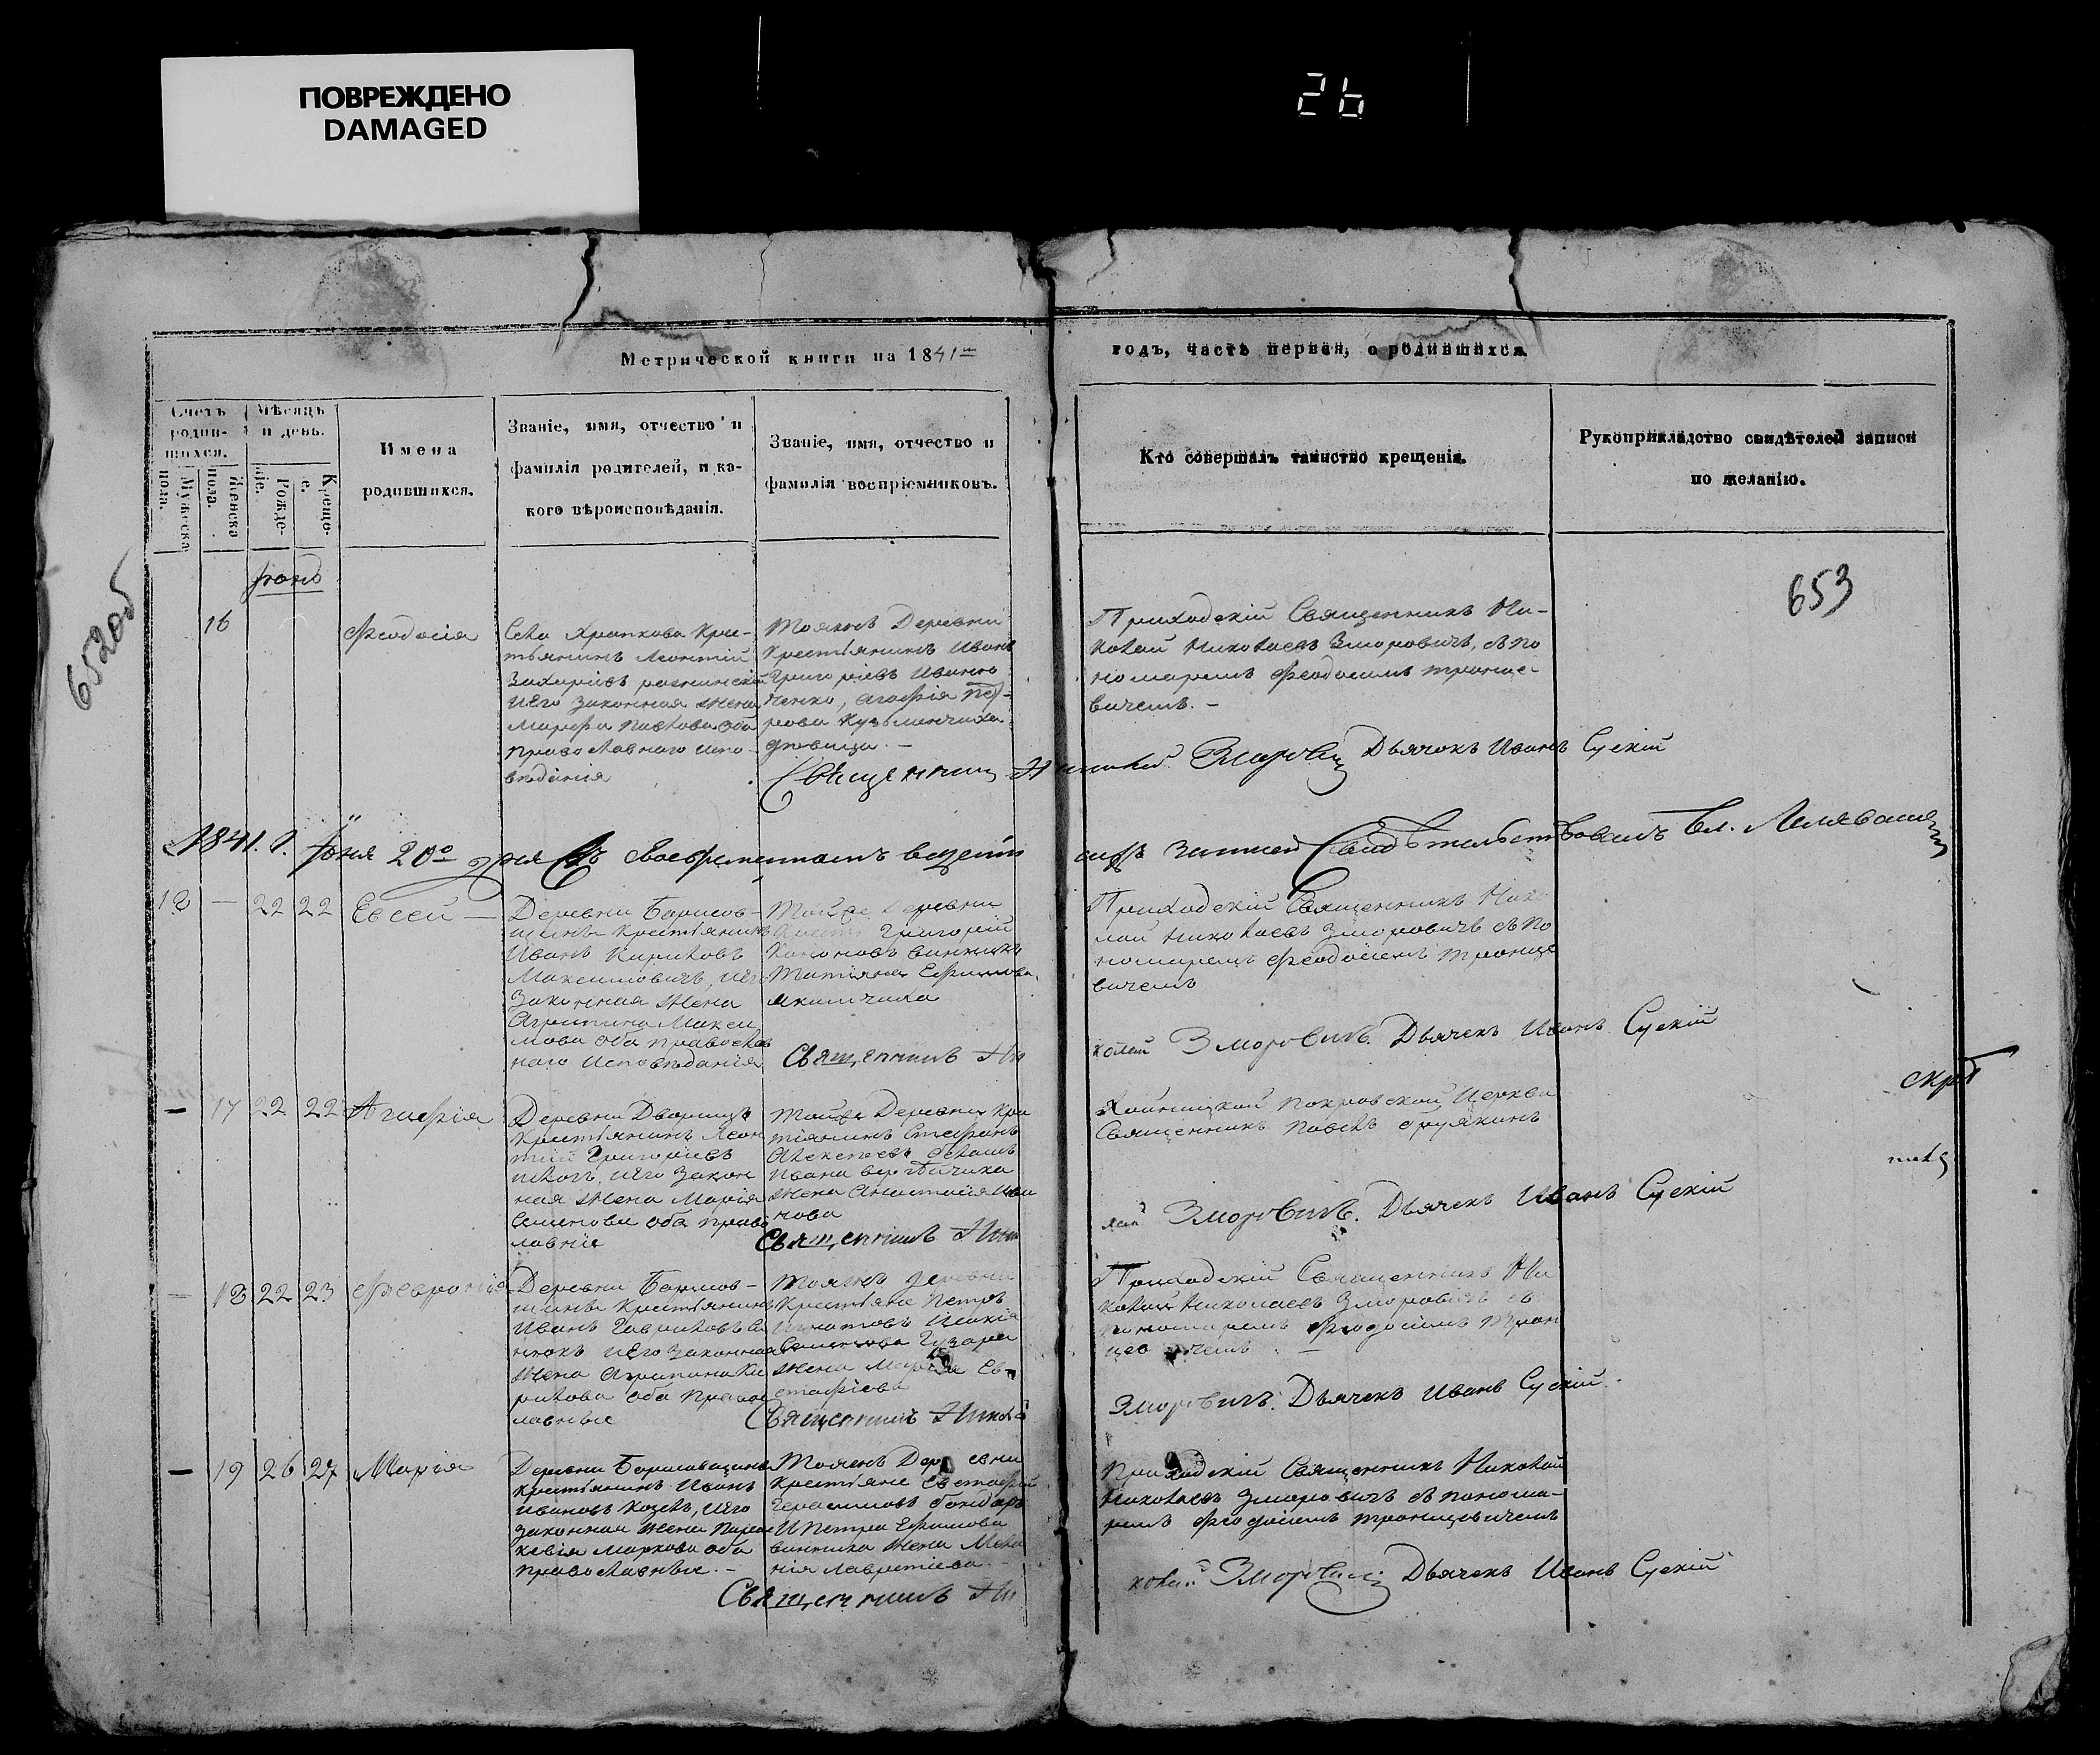 ПОВРЕЖДЕНО
DAMAGED
26
652об
653
Метрической книги на 1841
годъ, часть первая, о родившихся.
Счетъ родив-шихся.
Мѣсяцъ и день.
Имена
родившихся.
Званіе, имя, отчество и
фамилія родителей, и ка-
кого вѣроисповѣданія.
Званіе, имя, отчество и
фамилія воспріемниковъ.
Кто совершалъ таинство крещенія.
Рукоприкладство свидѣтелей записи
по желанію.
Мужеска пола.
Женска пола.
Рожде-ніе.
Креще-е.
16
Феодосія
Села Храпкова Крес-
тьянинъ Леонтій
Захаріевъ
иего законная жена
Марфа Павлова оба
православнаго испо-
вѣданія
Тояжъ Деревни
Крестьянинъ Иванъ
Григоріевъ Иваню
ченко, Агафія Пет-
рова Кузьменчиха
вдовица. —
Приходскій Священникъ Ни-
колай Николаевъ Зморовичъ, съ По
номаремъ Феодосіемъ Тронце-
вичемъ. —
Священникъ Николай Зморовичъ Дьячокъ Иванъ Сускій
1841. г. Іюня 20го дня
Свидѣтельствовалъ
18 — 22 22 Евсей —
Деревни Борисов-
щины Крестьянинъ
Иванъ Кириловъ
Максимовичъ, иего
Законная жена
Агрипина Макси
мова оба православ
наго Исповѣданія
Тойже Деревни
Григорій
Кононовъ Винникъ
Татіяна Ефимова
Якимчиха
Приходскій Священникъ Нико
лай Николаевъ Зморовичъ съ По
номаремъ Феодосіемъ Тронце
вичемъ
Священникъ Николай Зморовичъ. Дьячекъ Иванъ Сускій
— 17 22 22 Агафія
Деревни Дворища
Крестьянинъ Леон
тій Григоріевъ
иего закон
ная жена Марія
Семенова оба право
лавніе
Тойже Деревни Кре
тіянинъ Стефанъ
Алексѣевъ
Ивана
жена Анастасія Ива
нова
Хойницкой Покровской Церкви
Священникъ Павелъ
Священникъ Николай Зморовичъ. Дьячекъ Иванъ Сускій
— 18 22 23 Февронія
Деревни Борисов-
щины Крестьянинъ
Иванъ Гавриловъ
иего Законная
жена Агрипина Ки
рилова оба Правос
лавные
Тояжъ деревни
Крестьяне Петръ
Игнатовъ
жена Ев-
стафіева
Приходскій Священникъ Ни
колай Николаевъ Зморовичъ съ
Пономаремъ Феодосіемъ Трон
цевичемъ. —
Священникъ Николай Зморовичъ. Дьячекъ Иванъ Сускій
— 19 26 27 Марія
Деревни Борисовщины
Крестьянинъ Иванъ
Ивановъ Козелъ, иего
законная жена Парас
кевія Маркова оба
православные. —
Тояжъ Деревни
Крестьяне Евстафій
Герасимовъ Бондаръ
И Петра Ефимова
Винника жена Мела
нія Лаврентіева. —
Приходскій Священникъ Николай
Николаевъ Зморовичъ съ понома-
ремъ Феодосіемъ Тронцовичемъ
Священникъ Николай Зморовичъ Дьячекъ Иванъ Сускій